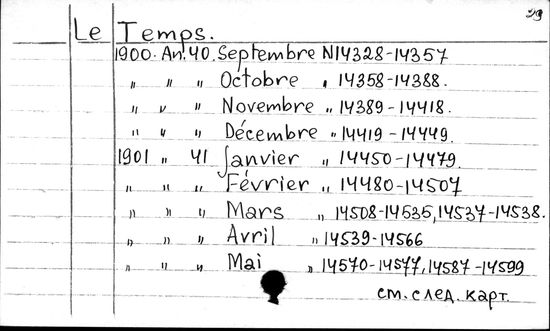 29
Le Temps.
1900. An. 40. Septembre N14328-14357
" " " Octobre " 14358-14388.
" " " Novembre " 14389-14418.
" " " Décembre " 14419-14449.
1901 " 41 Janvier " 14450-14479.
" " " Février " 14480-14507
" " " Mars " 14508-14535, 14537-14538.
" " " Avril " 14539-14566
" " " Mai " 14570-14577, 14587-14599
см. след. карт.